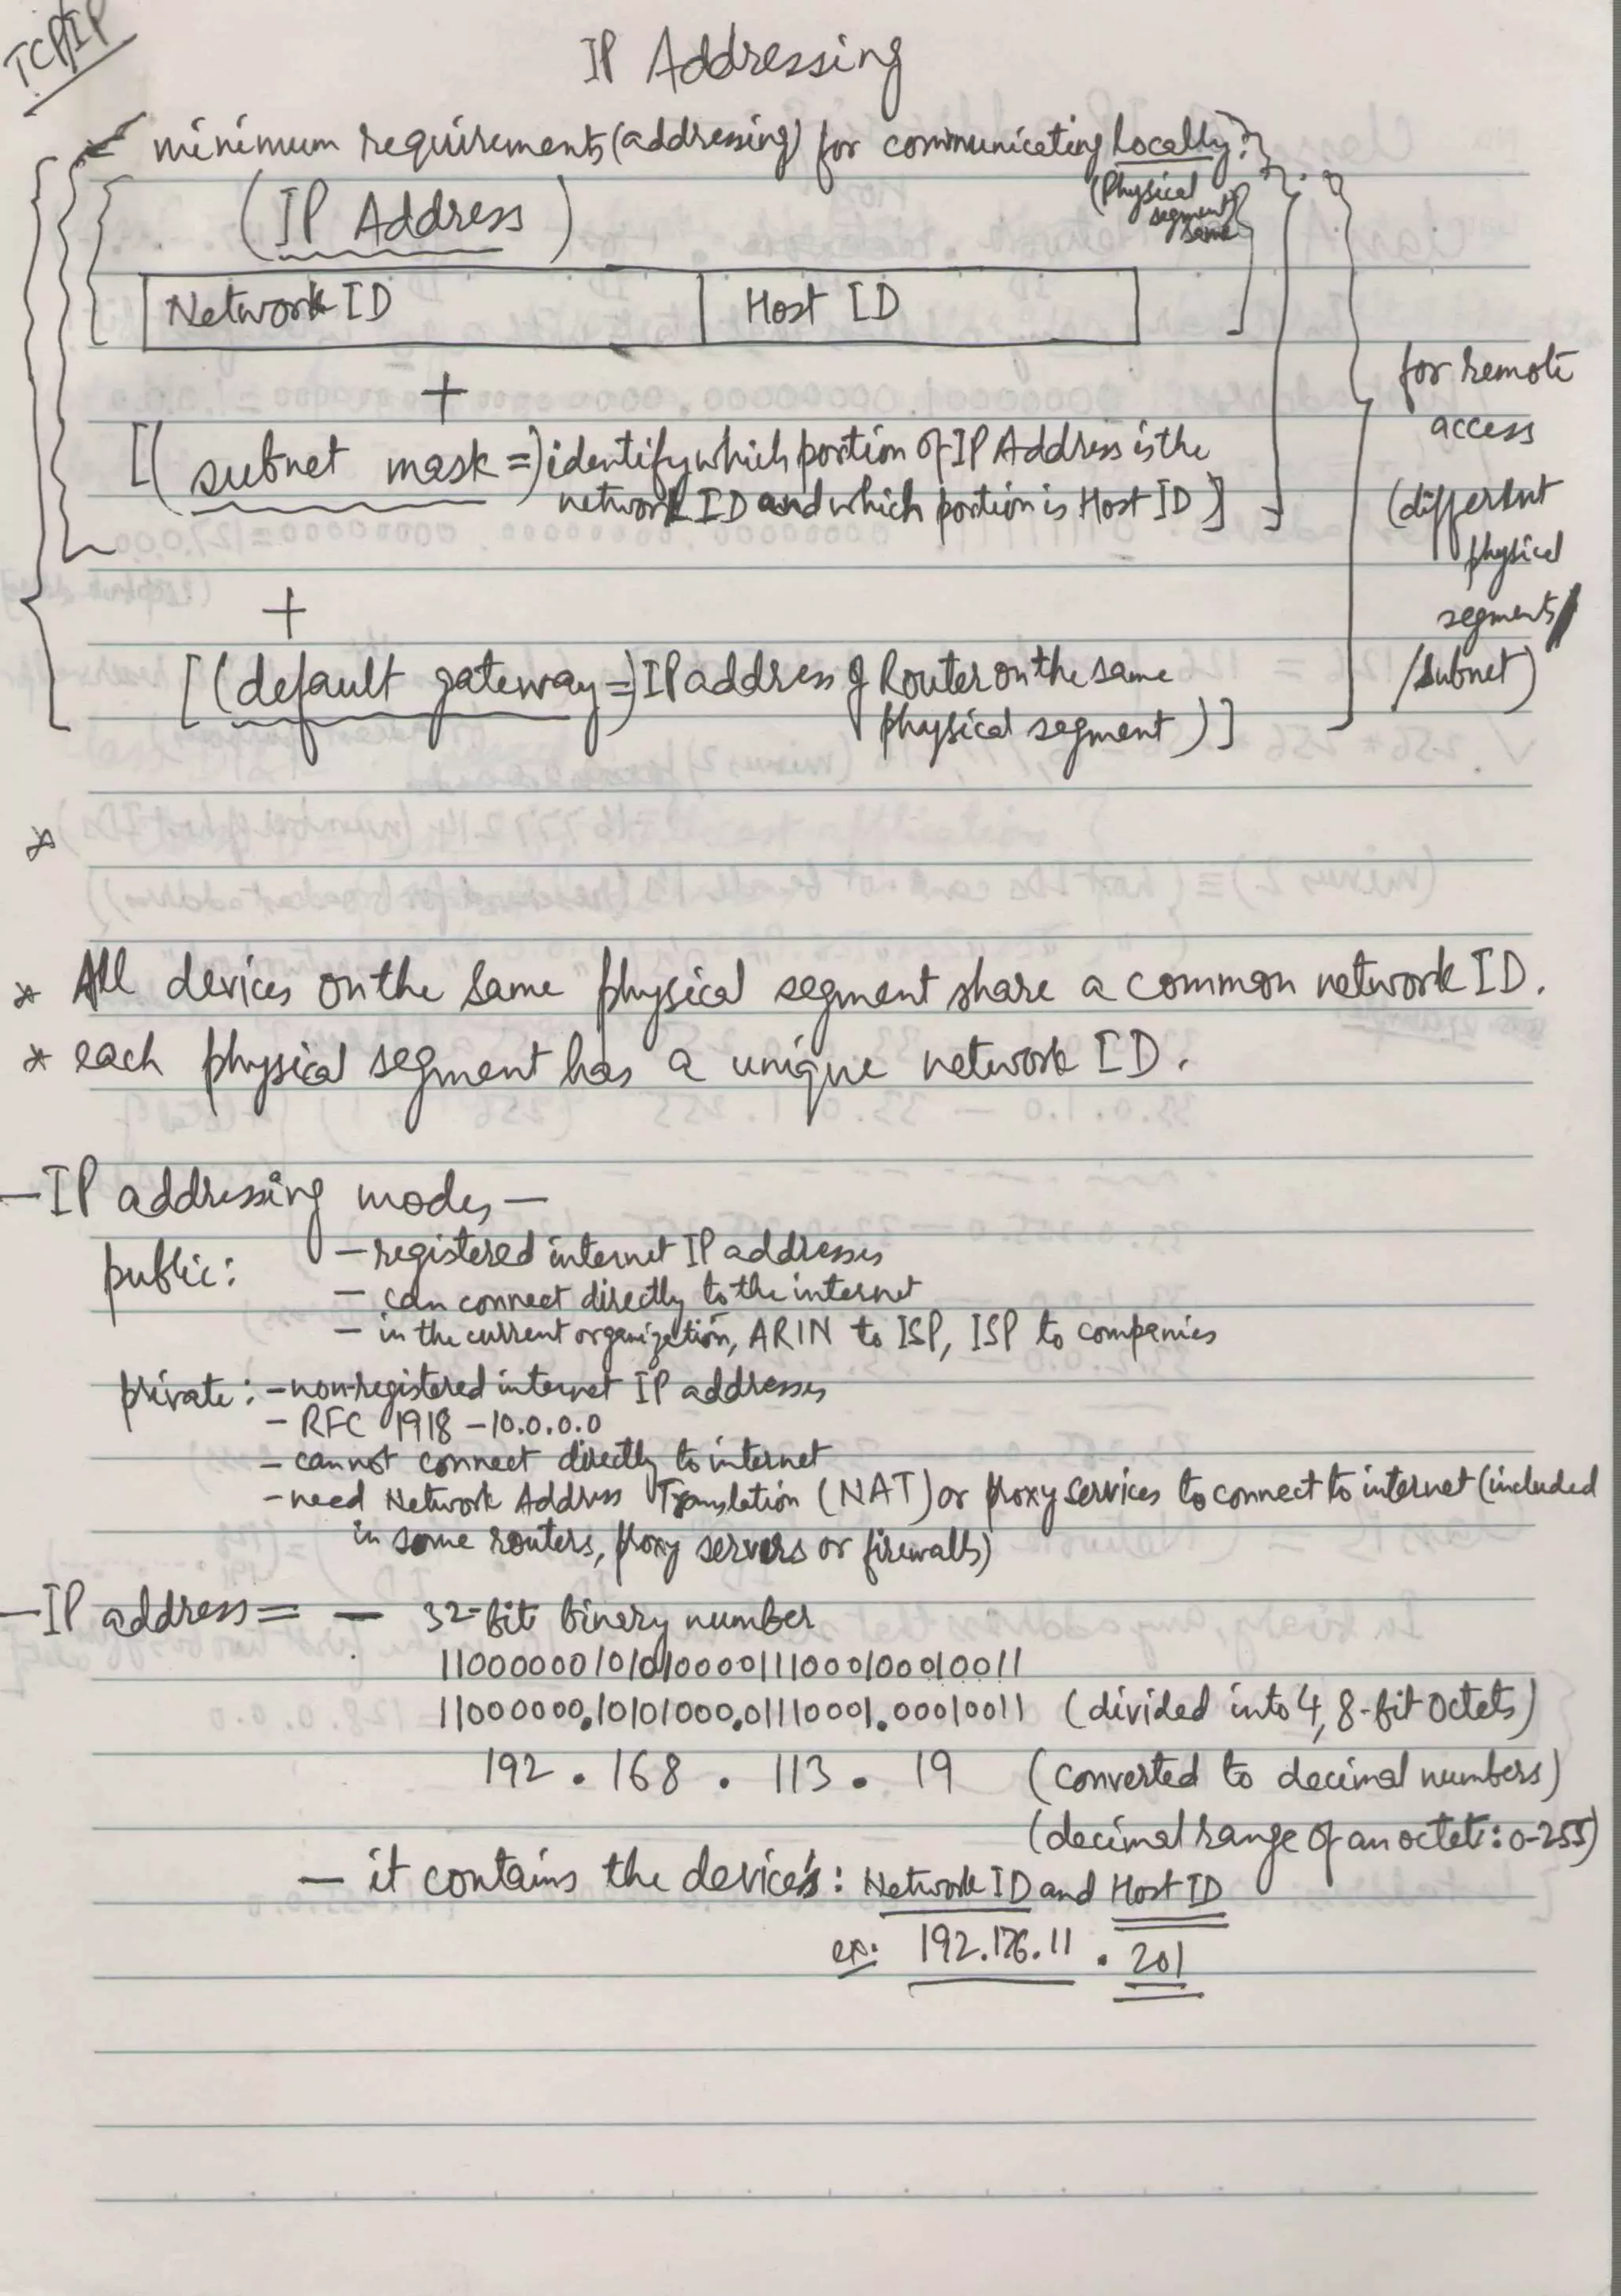 TCP/IP
IP Addressing
* minimum requirements (addressing) for communicating locally:
(Physical
segment
same)
(IP Address)
Network ID | Host ID
+
[(subnet mask =) identify which portion of IP Address is the
network ID and which portion is Host ID]
+
[(default gateway =) IP address of Router on the same
physical segment)]
for remote
access
(different
physical
segments
/subnet)
*
* All devices on the same physical segment share a common network ID.
* each physical segment has a unique network ID.
— IP addressing modes —
public: — registered internet IP addresses
— can connect directly to the internet
— in the current organization, ARIN to ISP, ISP to companies
private: — non-registered internet IP addresses
— RFC 1918 — 10.0.0.0
— cannot connect directly to internet
— need Network Address Translation (NAT) or proxy services to connect to internet (included
in some routers, proxy servers or firewalls)
— IP address = — 32-bit binary number
11000000101010000111000100010011
11000000.10101000.01110001.00010011 (divided into 4, 8-bit octets)
192 . 168 . 113 . 19 (converted to decimal numbers)
(decimal range of an octet: 0-255)
— it contains the device's: Network ID and Host ID
ex: 192.176.11 . 201